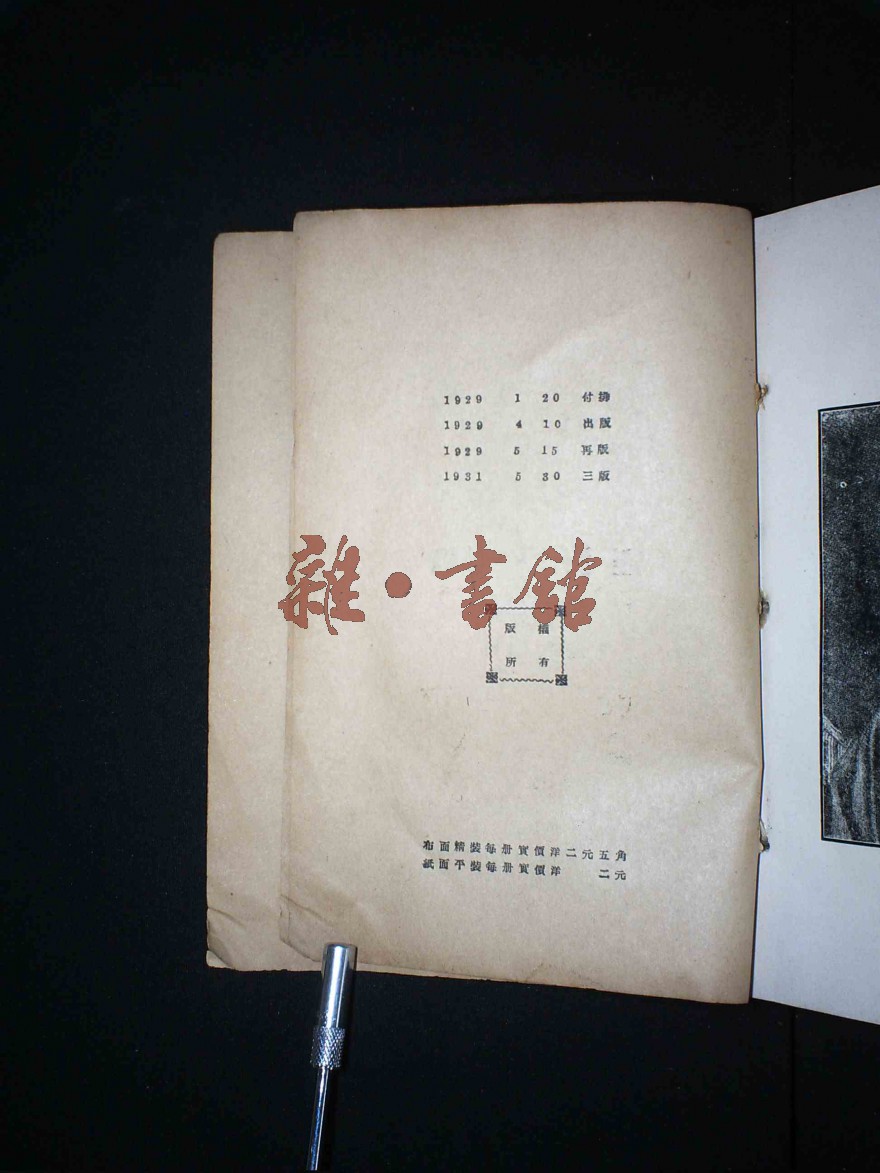 1929 1 20 付排
1929 4 10 出版
1929 5 15 再版
1931 5 30 三版
雜·書館
版權
所有
布面精裝每册實價洋二元五角
紙面平裝每册實價洋 二元